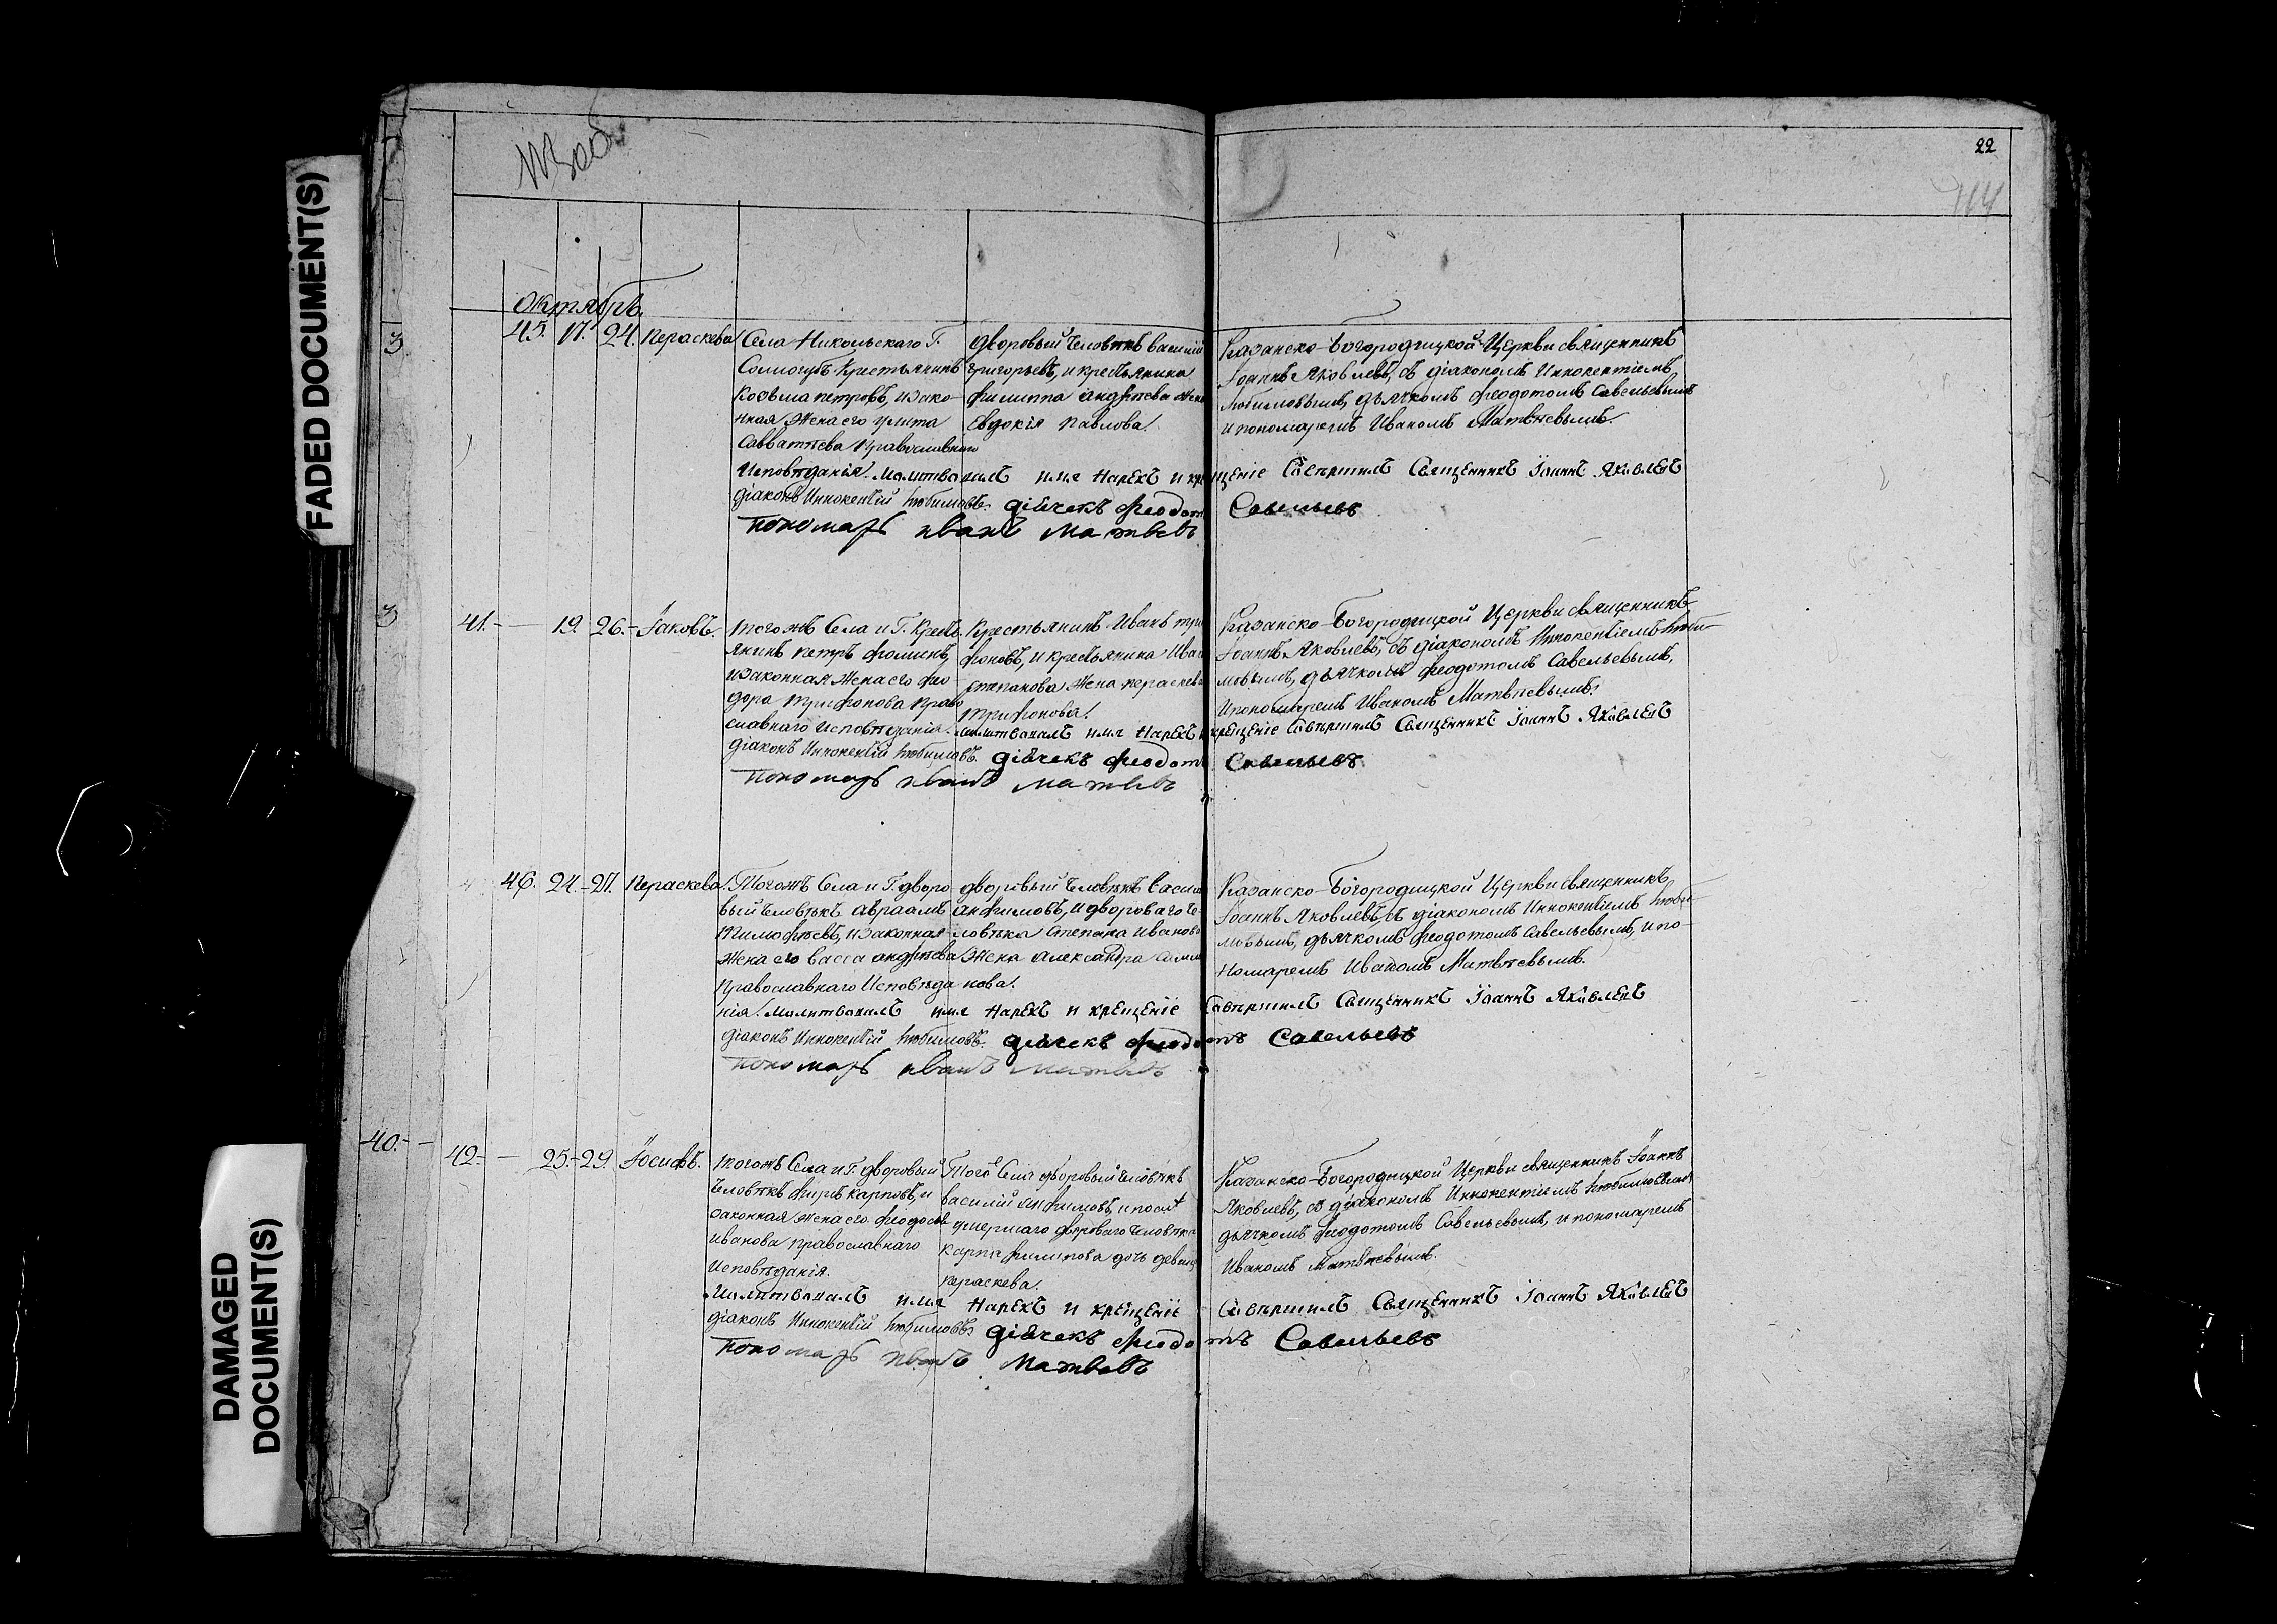 FADED DOCUMENT(S)
DAMAGED DOCUMENT(S)
22
114
Октябрь.
45. 17. 24. Пераскева
Села Никольскаго Г.
Сологубъ Крестьянинъ
Козьма Петровъ, изако-
нная Жена его Улита
Савватѣева Православнаго
Исповѣданія.
дворовый Человѣкъ Василий
Григорьевъ, и крестьянина
Филиппа Андрѣева Жена
Евдокія Павлова.
Казанско-Богородицкой Церкви священникъ
Іоаннъ Яковлевъ, съ діакономъ Иннокентіемъ
Любимовымъ, дьячкомъ Феодотомъ Савельевымъ
и пономаремъ Иваномъ Матвѣевымъ.
Молитвовалъ имя нарекъ и крещеніе совершилъ Священникъ Іоаннъ Яковлевъ
діаконъ Иннокентій Любимовъ. діачекъ Феодотъ Савельевъ
пономарь иванъ Матвевъ
41. — 19. 26. Іаковъ.
тогожъ Села и Г. Кресть-
янинъ Петръ Фоминъ,
изаконная Жена его Фео-
дора Трифонова Право-
славнаго Исповѣданія.
Крестьянинъ Иванъ Три
фоновъ, и крестьянина Ива
Степанова Жена пераскева
Трифонова.
Казанско-Богородицкой Церкви священникъ
Іоаннъ Яковлевъ, съ діакономъ Иннокентіемъ Люби-
мовымъ, дьячкомъ Феодотомъ Савельевымъ,
и пономаремъ Иваномъ Матвѣевымъ.
Молитвовалъ имя нарекъ и крещеніе совершилъ Священникъ Іоаннъ Яковлевъ
діаконъ Иннокентій Любимовъ. діачекъ Феодотъ Савельевъ
пономарь иванъ Матвевъ
46. 24. 27. Пераскева.
Тогожъ Села и Г. дворо
вый Человѣкъ Авраамъ
Тимофѣевъ, изаконная
Жена его Васса Андрѣева
Православнаго Исповѣда
нія.
дворовый Человѣкъ Васили
Анфимовъ, и двороваго Че-
ловѣка Степана Иванова
Жена Александра
нова.
Казанско-Богородицкой Церкви священникъ
Іоаннъ Яковлевъ, съ діакономъ Иннокентіемъ Люби-
мовымъ, дьячкомъ Феодотомъ Савельевымъ, и по-
номаремъ Иваномъ Матвѣевымъ.
Молитвовалъ имя нарекъ и крещеніе совершилъ Священникъ Іоаннъ Яковлевъ
діаконъ Иннокентій Любимовъ. діачекъ Феодотъ Савельевъ
пономарь иванъ Матвевъ
40.
42. — 25. 29. Іосифъ.
тогожъ Села и Г. дворовый
Человѣкъ Фирсъ Карповъ, и
законная Жена его Феодосья
Иванова Православнаго
Исповѣданія.
Того Села дворовый Человѣкъ
Василий Анфимовъ, и послѣ
умершаго двороваго Человѣка
Карпа Филипова дочь девица
пераскева.
Казанско-Богородицкой Церкви священникъ Іоаннъ
Яковлевъ, съ діакономъ Иннокентіемъ Любимовымъ
дьячкомъ Феодотомъ Савельевымъ, и пономаремъ
Иваномъ Матвѣевымъ.
Молитвовалъ имя нарекъ и крещеніе совершилъ Священникъ Іоаннъ Яковлевъ
діаконъ Иннокентій Любимовъ. діачекъ Феодотъ Савельевъ
пономарь иванъ Матвевъ